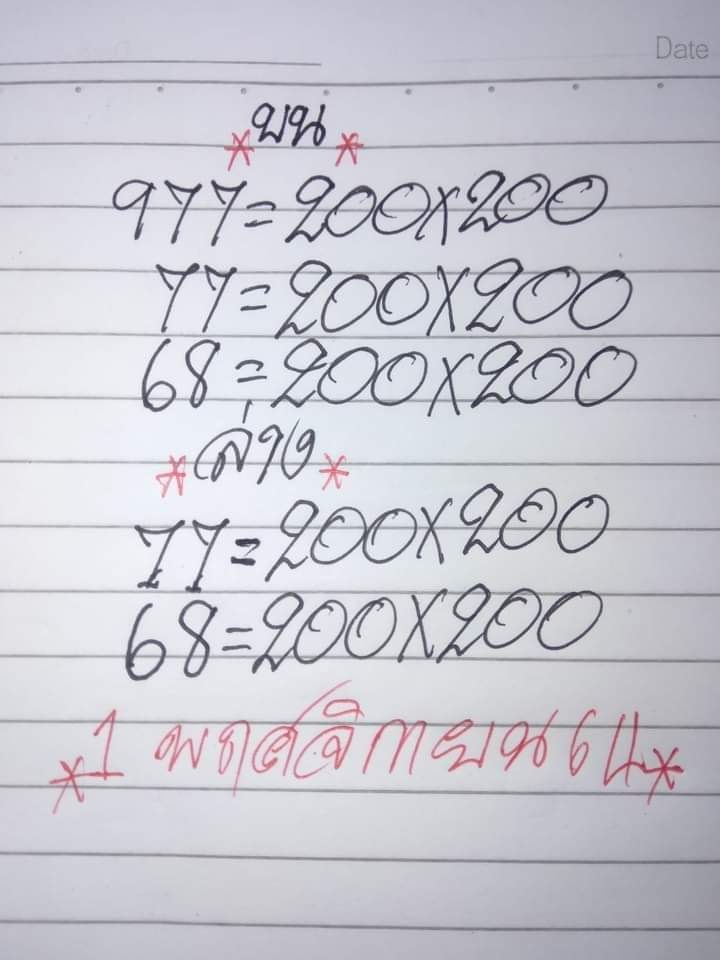 Date
*บน*
977=200X200
77=200X200
68=200X200
*ล่าง*
77=200X200
68=200X200
*1 พฤศจิกายน 64*